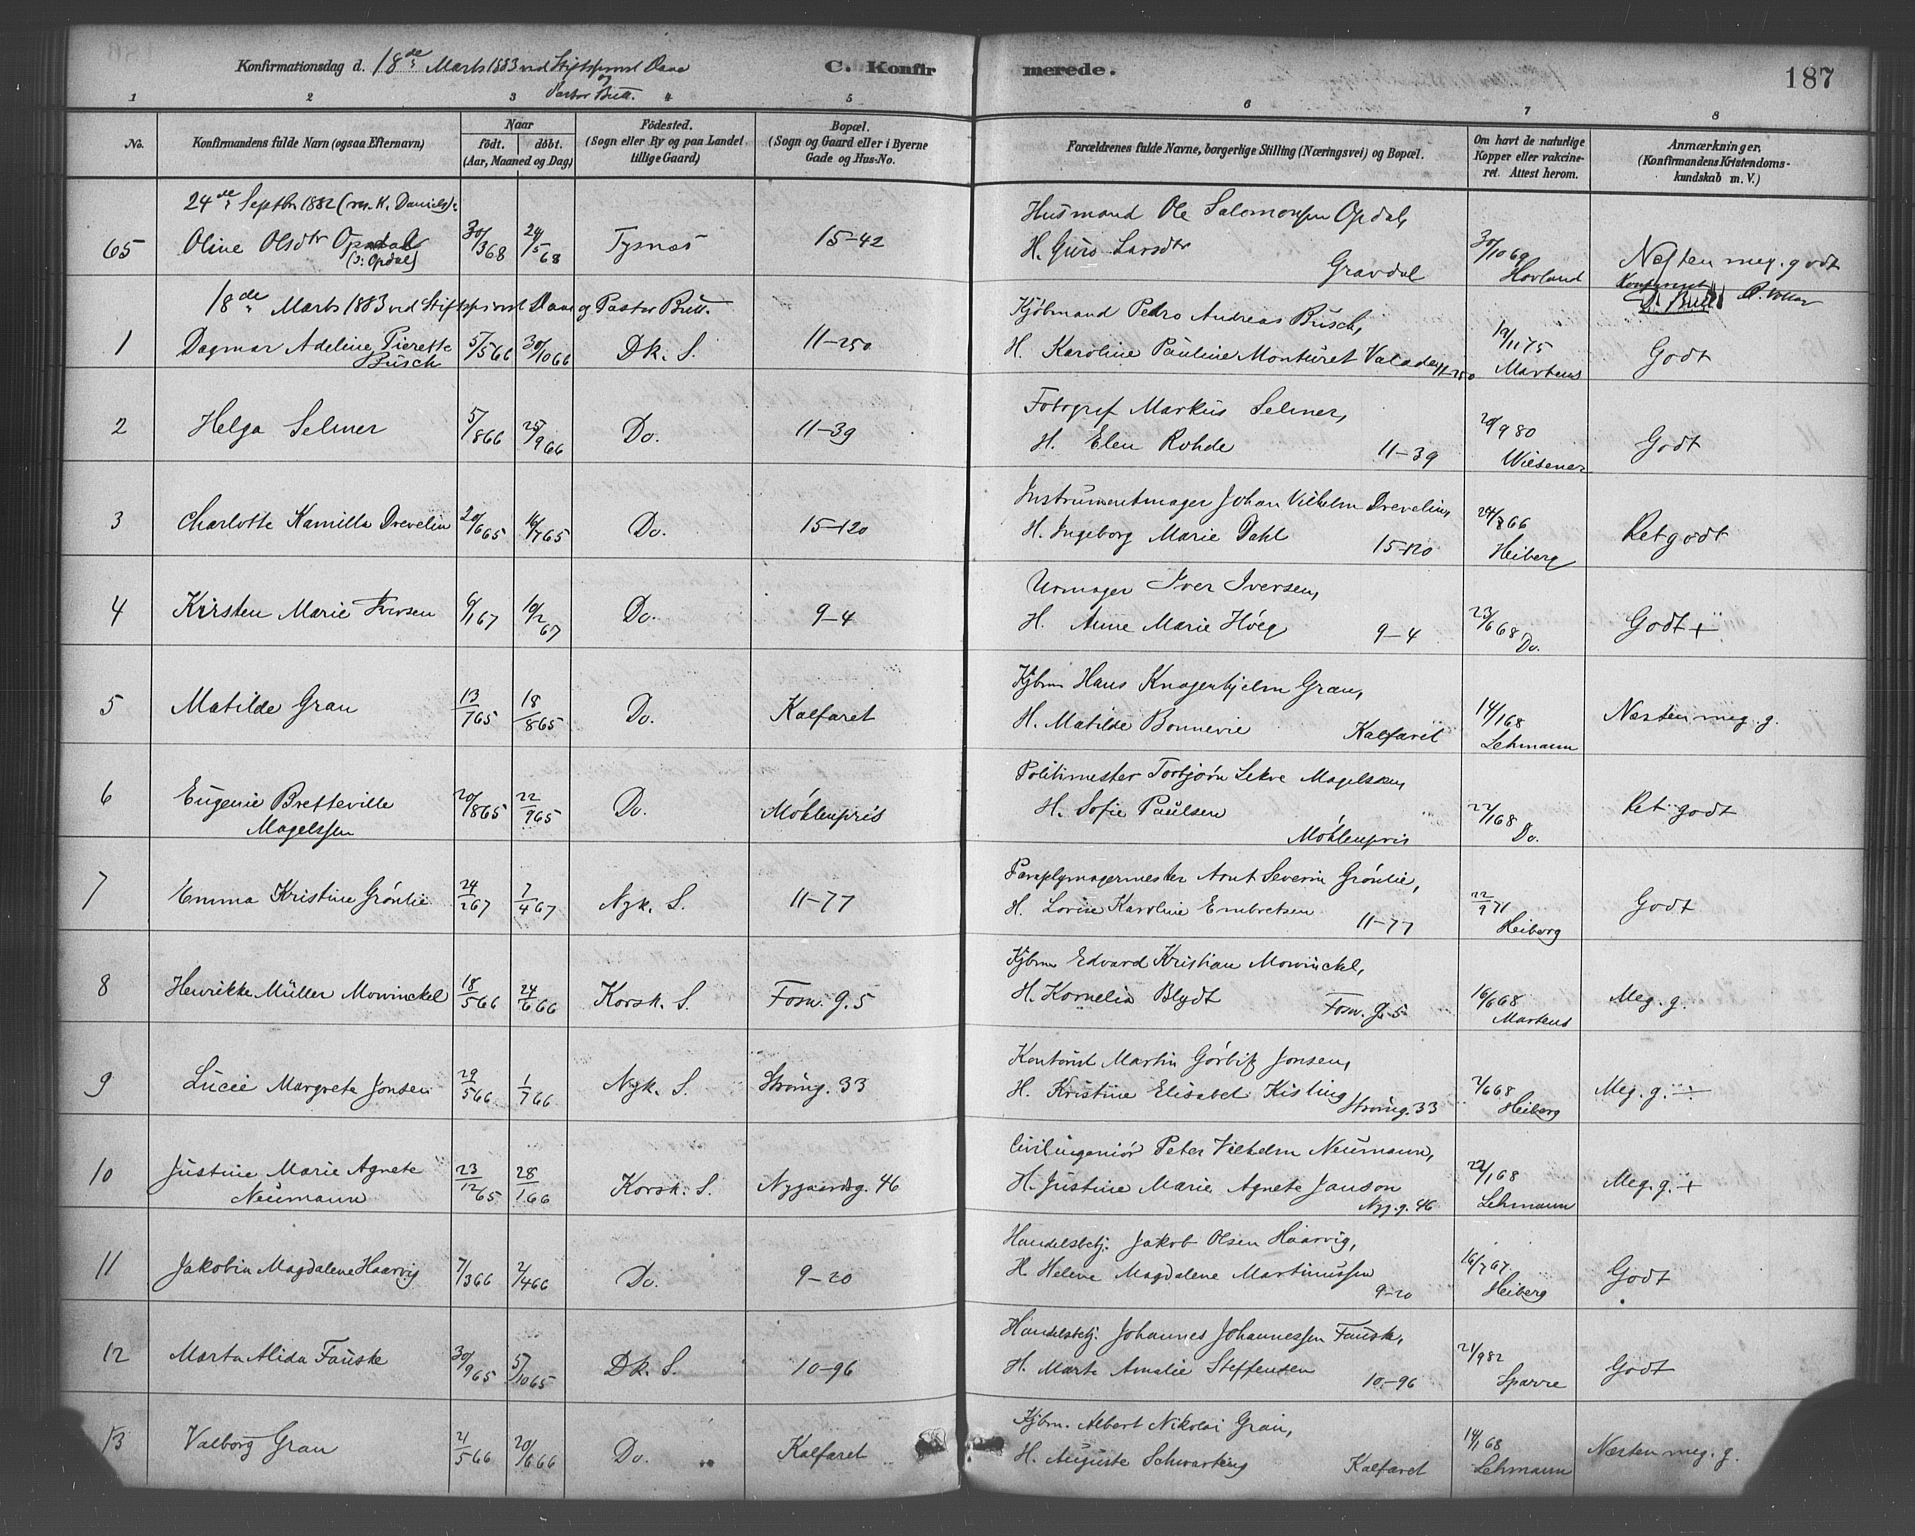 Konfirmationsdag d. 18de Marts 1883 ved Stiftsprovst Daae
og
Pastor Bull.
C. Konfirmerede.
187
1 2 3 4 5 6 7 8
No.
Konfirmandens fulde Navn (ogsaa Efternavn)
Naar
födt. döbt.
(Aar, Maaned og Dag)
Födested.
(Sogn eller By og paa Landet tillige Gaard)
Bopæl.
(Sogn og Gaard eller i Byerne Gade og Hus-No.
Forældrenes fulde Navne, borgerlige Stilling (Næringsvei) og Bopæl.
Om havt de naturlige Kopper eller vakcineret. Attest herom.
Anmærkninger.
(Konfirmandens Kristendomskundskab m. V.)
24de Septbr 1882 (res. K. Daniels):
65 Oline Olsdtr Opdal 30/3 68 24/5 68 Tysnæs 15-42
(ɔ: Opdal)
Husmand Ole Salomonsen Opdal,
H. Guro Larsdtr
Gravdal
30/10 69 Hovland
Næsten meg. godt
Konfirmeret
18de Marts 1883 ved Stiftsprovst Daae og Pastor Bull.
1 Dagmar Adeline Pierette Busch 5/5 66 30/10 66 Dk. S. 11-250
Kjøbmand Pedro Andreas Busch,
H. Karoline Pauline Monturet Valade 11-250
19/11 75 Martens
Godt
2 Helga Selmer 5/8 66 25/9 66 Do. 11-39
Fotogref Markus Selmer,
H. Elen Rohde 11-39
29/9 80 Wiesener
Godt
3 Charlotte Kamilla Drevelin 20/6 65 16/7 65 Do. 15-120
Instrumentmager Johan Vilhelm Drevelin,
H. Ingeborg Marie Dahl 15-120
24/8 66 Heiberg
Ret godt
4 Kirsten Marie Iversen 6/1 67 10/2 67 Do. 9-4
Urmager Iver Iversen,
H. Anne Marie Höeg 9-4
23/6 68 Do.
Godt +
5 Matilde Gran 13/7 65 18/8 65 Do. Kalfaret
Kjbm Hans Knagenhjelm Gran,
H. Matilde Bonnevie Kalfaret
14/1 68 Lehmann
Næsten meg. g.
6 Eugenie Bretteville Magelssen 20/8 65 22/9 65 Do. Möhlenpris
Politimester Torbjörn Lekve Magelssen,
H. Sofie Paulsen
Möhlenpris
22/1 68 Do.
Ret godt
7 Emma Kristine Grönlie 24/2 67 7/4 67 Nyk. S. 11-77
Paraplymagermester Arnt Severin Grönlie,
H. Lovise Karoline Embretsen 11-77
22/9 71 Heiberg
Godt
8 Henrikke Müller Mowinckel 18/5 66 24/6 66 Korsk. S. Fosw. G. 5
Kjbm Edvard Kristian Mowinckel,
H. Kornelia Blydt Fosw. G. 5
16/6 68 Martens
Meg. g.
9 Lucie Margrete Jonsen 29/5 66 1/7 66 Nyk. S. Strömg. 33
Kontorist Martin Görbitz Jonsen,
H. Kristine Elisabet Kisling Strömg. 33
2/6 68 Heiberg
Meg. g. ÷
10 Justine Marie Agnete Neumann 23/12 65 28/1 66 Korsk. S. Nygaardsg. 46
Civilingeniör Peter Vilhelm Neumann,
H. Justine Marie Agnete Janson
Nyg. g. 46
22/1 68 Lehmann
Meg. g. +
11 Jakobin Magdalene Haarvig 7/3 66 2/4 66 Do. 9-20
Handelsbetj. Jakob Olsen Haarvig,
H. Helene Magdalene Martinussen
9-20
16/7 67 Heiberg
Godt
12 Marta Alida Fauske 30/9 65 5/10 65 Dk. S. 10-96
Handelsbetj. Johannes Johannessen Fauske,
H. Marte Amalie Steffensen 10-96
21/9 82 Sparre
Godt
13 Valborg Gran 2/5 66 20/6 66 Do. Kalfaret
Kjbm. Albert Nikolai Gran,
H. Auguste Schwarting Kalfaret
14/1 68 Lehmann
Næsten meg. g.